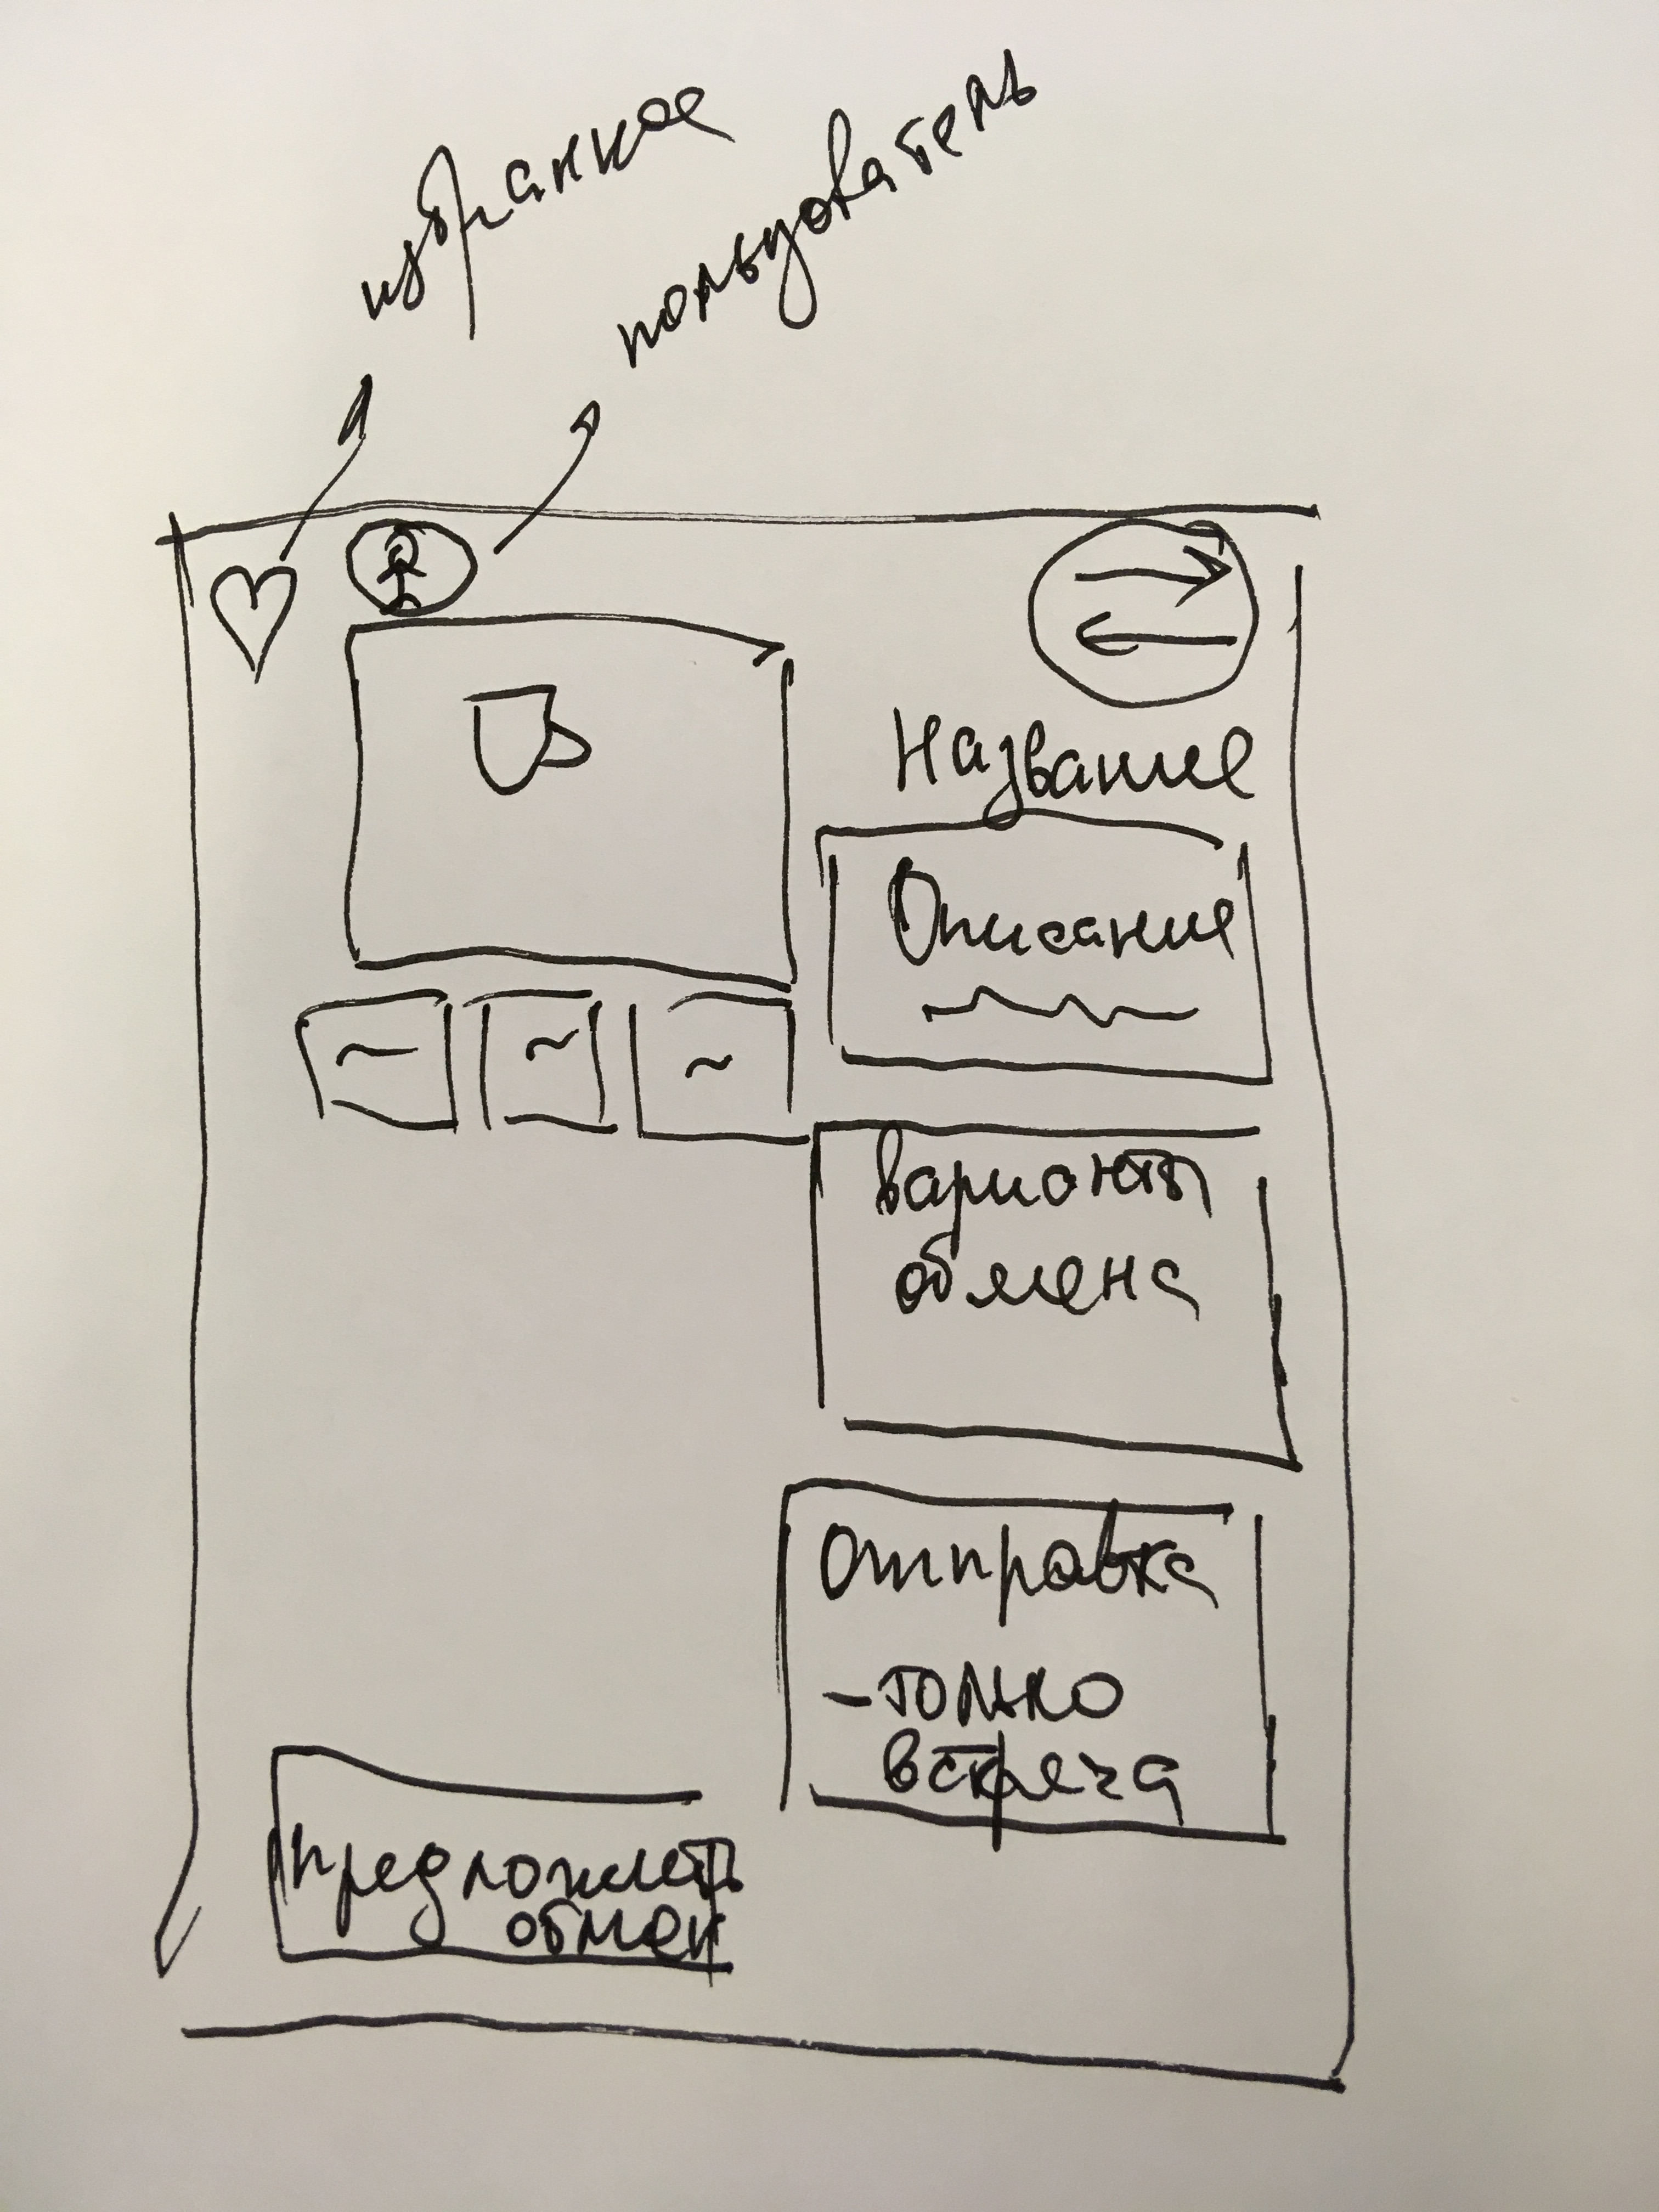 избранное
пользователь
Название
Описание
Варианты
обмена
Отправка
- только
встреча
предложить
обмен